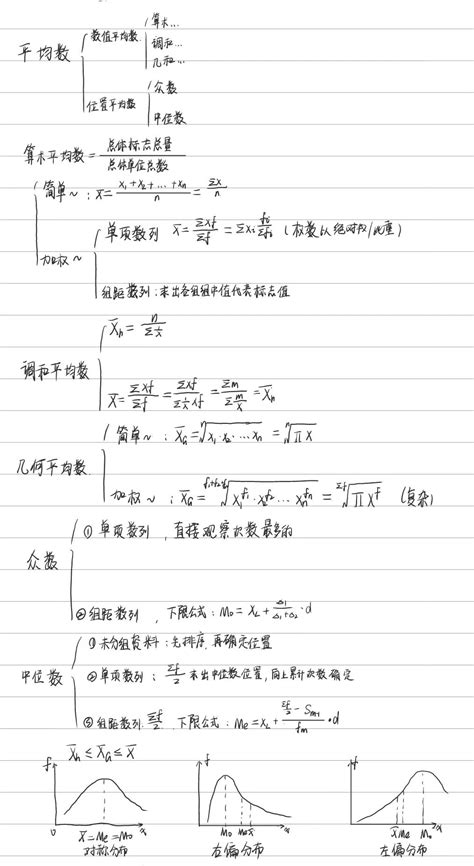 平均数
数值平均数
算术…
调和…
几何…
位置平均数
众数
中位数
算术平均数 = 总体标志总量 / 总体单位总数
简单~ : x̄ = (x₁+x₂+…+xₙ)/n = Σx/n
加权~
单项数列 x̄ = Σxf/Σf = Σxᵢ fᵢ/Σfᵢ (权数以绝对权/比重)
组距数列:求出各组组中值代表标志值
调和平均数
X̄h = n/Σ(1/x)
X̄ = Σxf/Σf = Σxf/Σ(1/x)xf = Σm/Σ(m/x) = X̄h
几何平均数
简单~ : X̄G = ⁿ√(x₁·x₂·…xₙ) = ⁿ√(πx)
加权~ : X̄G = ^(f₁+f₂…)√(x₁^f₁·x₂^f₂…xₙ^fₙ) = ^(Σf)√(πx^f) (复杂)
众数
① 单项数列,直接观察次数最多的
② 组距数列,下限公式:Mo = XL + Δ₁/(Δ₁+Δ₂)·d
中位数
① 未分组资料:先排序,再确定位置
② 单项数列:Σf/2 求出中位数位置,向上累计次数确定
③ 组距数列:Σf/2,下限公式:Me = XL + (Σf/2 − Sm-1)/fm·d
X̄h ≤ X̄G ≤ X̄
f
0
x
X̄=Me=Mo
对称分布
f
Mo Me X̄
x
右偏分布
f
X̄ Me Mo
x
左偏分布